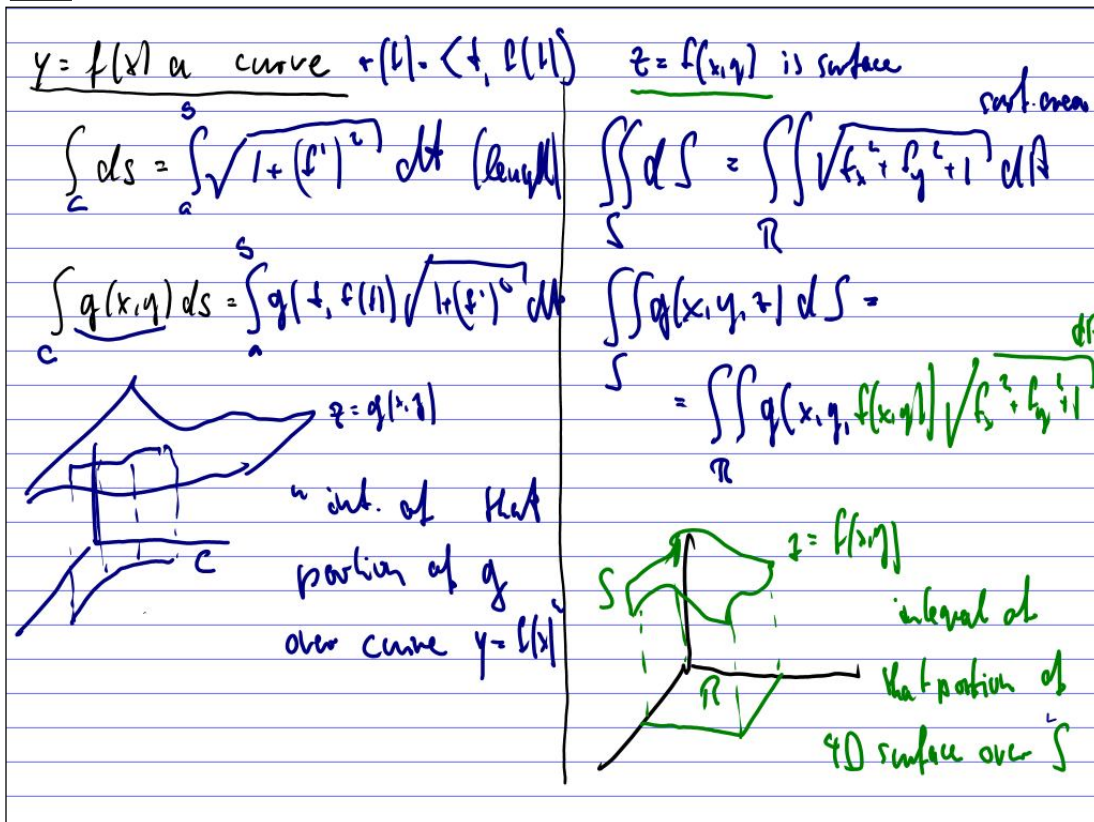 y = f(x) a curve r(t) = < t, f(t) >
∫_C ds = ∫_a^b √(1 + (f')²) dt (length)
∫_C g(x,y) ds = ∫_a^b g(t, f(t)) √(1+(f')²) dt
z = g(x,y)
C
" int. of that
portion of g
over curve y = f(x) "
z = f(x,y) is surface
surf. area
∬_S dS = ∬_R √(f_x² + f_y² + 1) dA
∬_S g(x, y, z) dS =
= ∬_R g(x, y, f(x,y)) √(f_x² + f_y² + 1) dA
S
z = f(x,y)
R
integral of
that portion of
4D surface over S